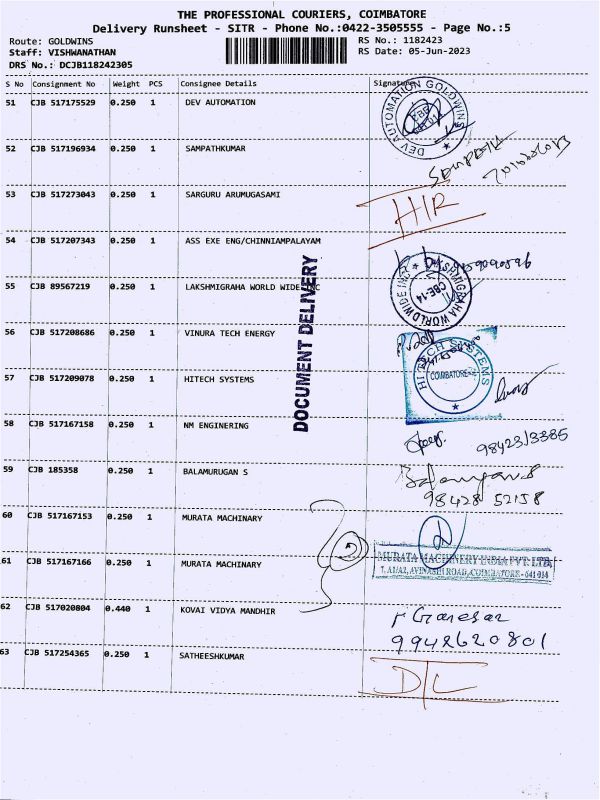 THE PROFESSIONAL COURIERS, COIMBATORE
Delivery Runsheet - SITR - Phone No.:0422-3505555 - Page No.:5
Route: GOLDWINS RS No.: 1182423
Staff: VISHWANATHAN RS Date: 05-Jun-2023
DRS No.: DCJB118242305
S No Consignment No Weight PCS Consignee Details Signature
51 CJB 517175529 0.250 1 DEV AUTOMATION
DEV AUTOMATION GOLDWINS
52 CJB 517196934 0.250 1 SAMPATHKUMAR
53 CJB 517273043 0.250 1 SARGURU ARUMUGASAMI
54 CJB 517207343 0.250 1 ASS EXE ENG/CHINNIAMPALAYAM
55 CJB 89567219 0.250 1 LAKSHMIGRAHA WORLD WIDE INC
LAKSHMIGRAHA WORLDWIDE INC
CBE-14
DOCUMENT DELIVERY
56 CJB 517208686 0.250 1 VINURA TECH ENERGY
57 CJB 517209078 0.250 1 HITECH SYSTEMS
HITECH SYSTEMS
COIMBATORE
58 CJB 517167158 0.250 1 NM ENGINERING
98423/3385
59 CJB 185358 0.250 1 BALAMURUGAN S
98428 52158
60 CJB 517167153 0.250 1 MURATA MACHINARY
61 CJB 517167166 0.250 1 MURATA MACHINARY
MURATA MACHINERY INDIA PVT. LTD.
AVINASHI ROAD, COIMBATORE - 641 014
62 CJB 517020804 0.440 1 KOVAI VIDYA MANDHIR
r Ganesar
9942620801
63 CJB 517254365 0.250 1 SATHEESHKUMAR
DTL